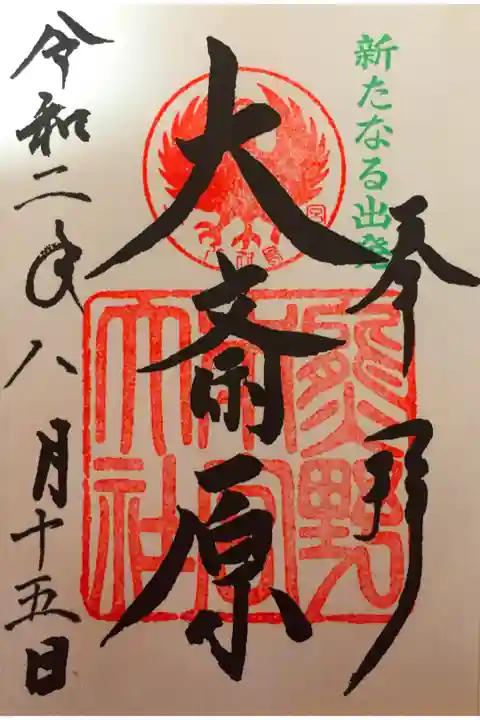 新たなる出発
奉拝
大斎原
熊野
本宮
大社
令和二年八月十五日